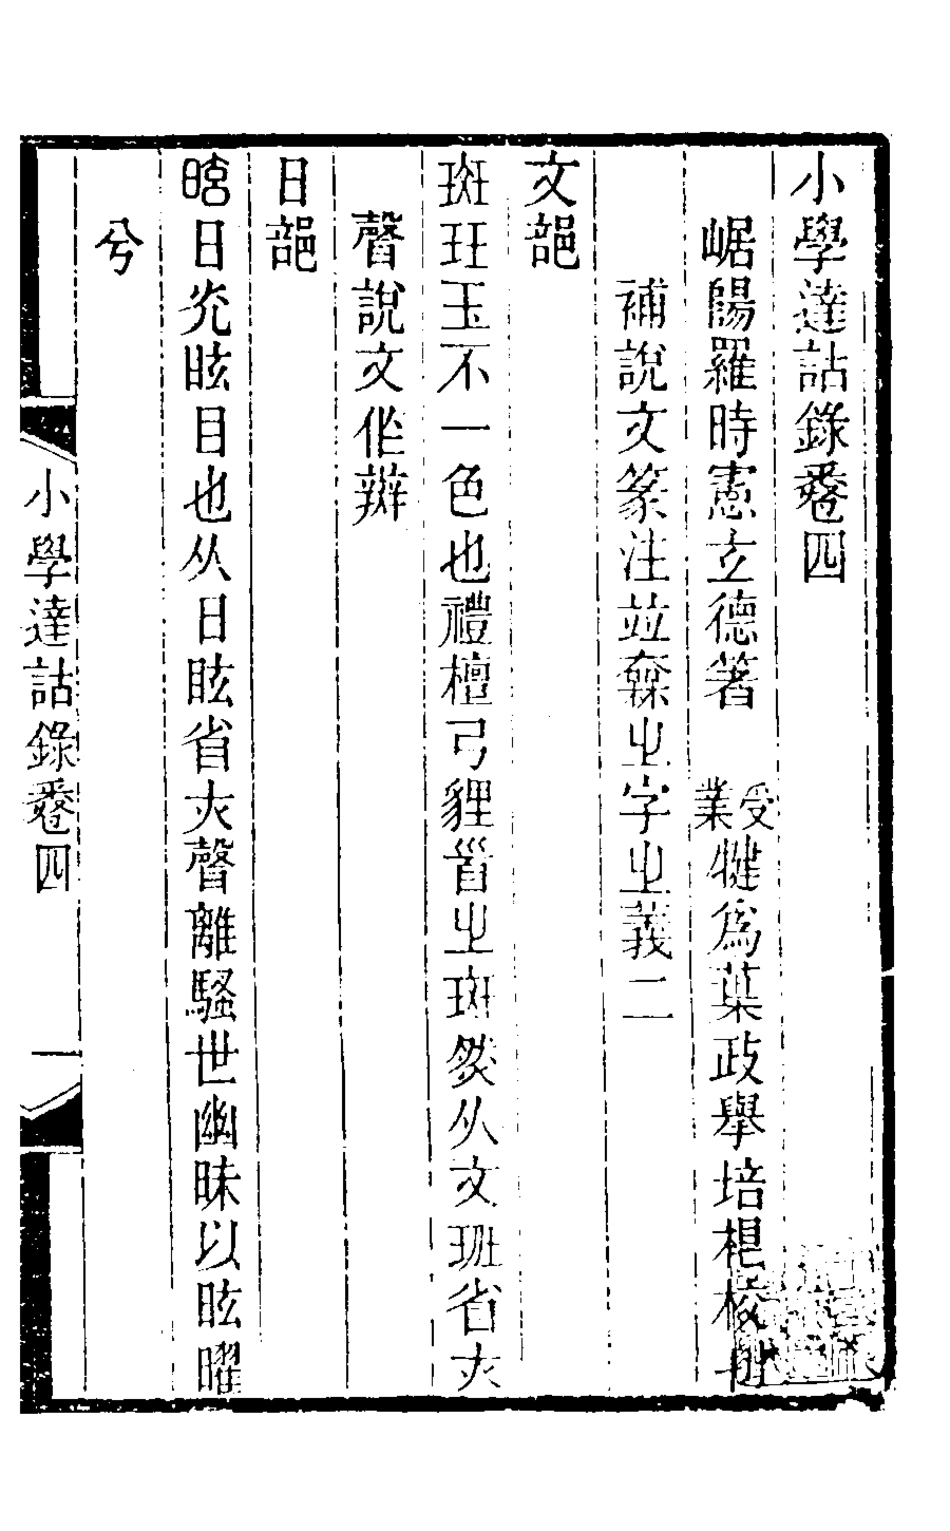 小學達詁錄卷四
崌陽羅時憲立德著 受業犍爲葉政舉培桯校刊
補說文篆注並雜㞢字㞢義二
文部
斑玨玉不一色也禮檀弓貍首㞢斑然从文班省亦
聲說文作辬
日部
暗日光眩目也从日眩省亦聲離騷世幽昧以眩曜
兮
小學達詁錄卷四
一